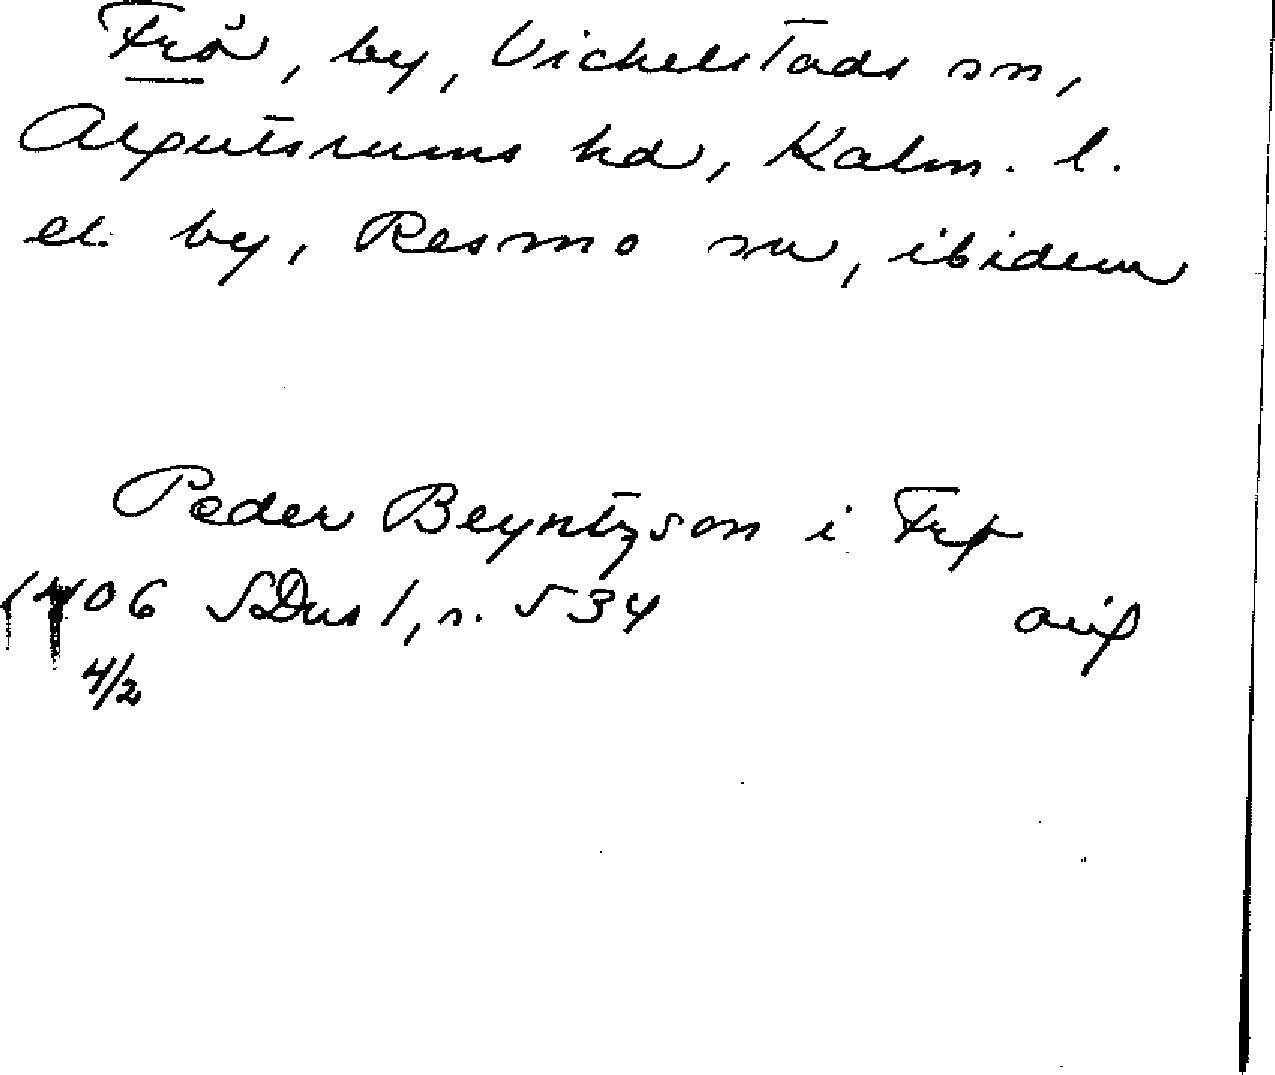 Frö, by, Vickelstads sn,
Algutsrums hd, Kalm. l.
el. by, Resmo sn, ibidem
Peder Beyntzson i Frø
1406 SDns 1, s. 534 avs
4/2